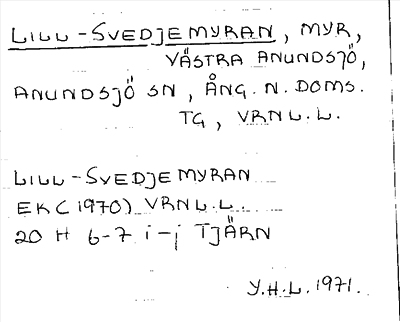 LILL-SVEDJEMYRAN, MYR,
VÄSTRA ANUNDSJÖ,
ANUNDSJÖ SN, ÅNG. N. DOMS.
TG, VRNL.L.
LILL-SVEDJEMYRAN
EK(1970) VRNL.L.
20 H 6-7 i-j TJÄRN
Y.H.L. 1971.